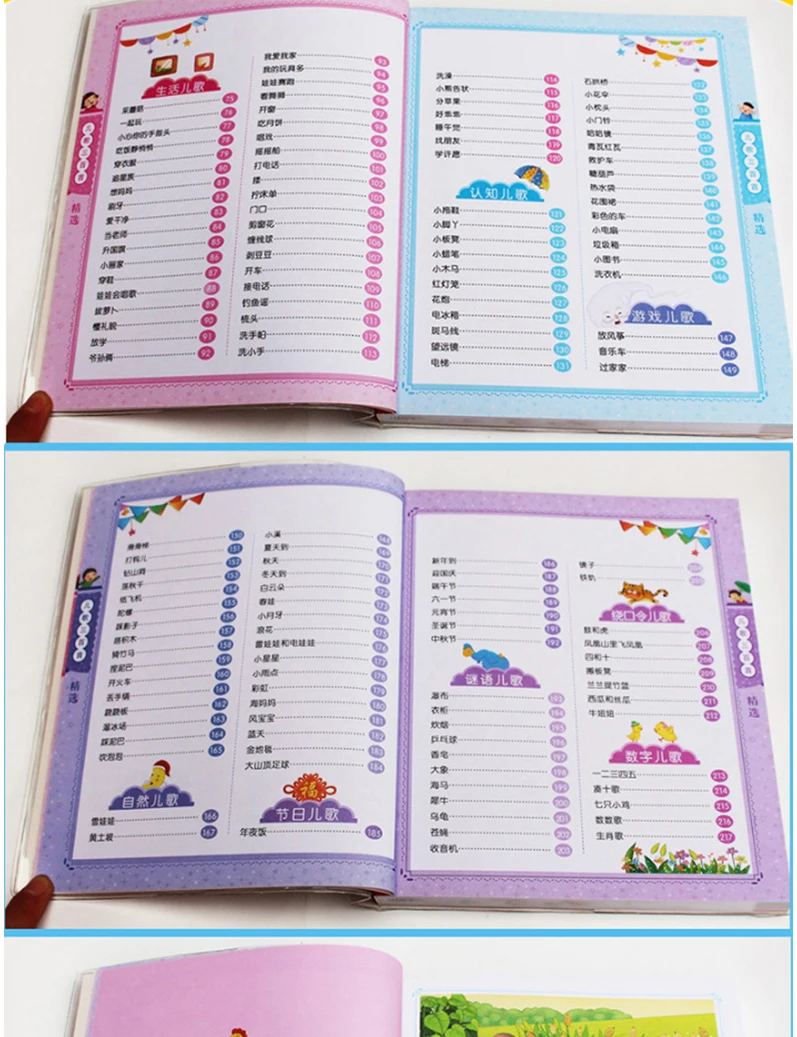 生活儿歌
采蘑菇 75
一起玩 76
小心你的手指头 77
吃饭静悄悄 78
穿衣服 79
追星族 80
想妈妈 81
刷牙 82
爱干净 83
当老师 84
升国旗 85
小画家 86
穿鞋 87
娃娃会唱歌 88
拔萝卜 89
懂礼貌 90
放学 91
爷孙俩 92
我爱我家 93
我的玩具多 94
娃娃赛跑 95
96
开窗 97
吃月饼 98
唱戏 99
摇摇船 100
打电话 101
搂 102
拧床单 103
门口 104
剪窗花 105
缠线球 106
剥豆豆 107
开车 108
接电话 109
钓鱼谣 110
梳头 111
洗手帕 112
洗小手 113
洗澡 114
小熊告状 115
分苹果 116
好乖乖 117
睡午觉 118
找朋友 119
学许愿 120
认知儿歌
小拖鞋 121
小脚丫 122
小板凳 123
小蜡笔 124
小木马 125
红灯笼 126
花炮 127
电冰箱 128
斑马线 129
望远镜 130
电梯 131
石拱桥 132
小花伞 133
小枕头 134
小门铃 135
哈哈镜 136
青瓦红瓦 137
救护车 138
糖葫芦 139
热水袋 140
花围裙 141
彩色的车 142
小电扇 143
垃圾箱 144
小图书 145
洗衣机 146
游戏儿歌
放风筝 147
音乐车 148
过家家 149
儿歌三百首
精选
儿歌三百首
精选
滑滑梯 150
打钩儿 151
钻山洞 152
荡秋千 153
纸飞机 154
陀螺 155
踩影子 156
搭积木 157
骑竹马 158
捏泥巴 159
开火车 160
丢手绢 161
跷跷板 162
溜冰场 163
踩泥巴 164
吹泡泡 165
自然儿歌
雪娃娃 166
黄土坡 167
小溪 168
夏天到 169
秋天 170
冬天到 171
白云朵 172
春娃 173
小月牙 174
浪花 175
雷娃娃和电娃娃 176
小星星 177
小雨点 178
彩虹 179
海妈妈 180
风宝宝 181
蓝天 182
金地毯 183
大山顶足球 184
福
节日儿歌
年夜饭 185
新年到 186
迎国庆 187
端午节 188
六一节 189
元宵节 190
圣诞节 191
中秋节 192
谜语儿歌
瀑布 193
衣柜 194
炊烟 195
乒乓球 196
香皂 197
大象 198
海马 199
犀牛 200
乌龟 201
苍蝇 202
收音机 203
镜子 204
铁轨 205
绕口令儿歌
鼓和虎 206
凤凰山里飞凤凰 207
四和十 208
搬板凳 209
兰兰提竹篮 210
西瓜和丝瓜 211
牛妞妞 212
数字儿歌
一二三四五 213
凑十歌 214
七只小鸡 215
数数歌 216
生肖歌 217
儿歌三百首
精选
儿歌三百首
精选